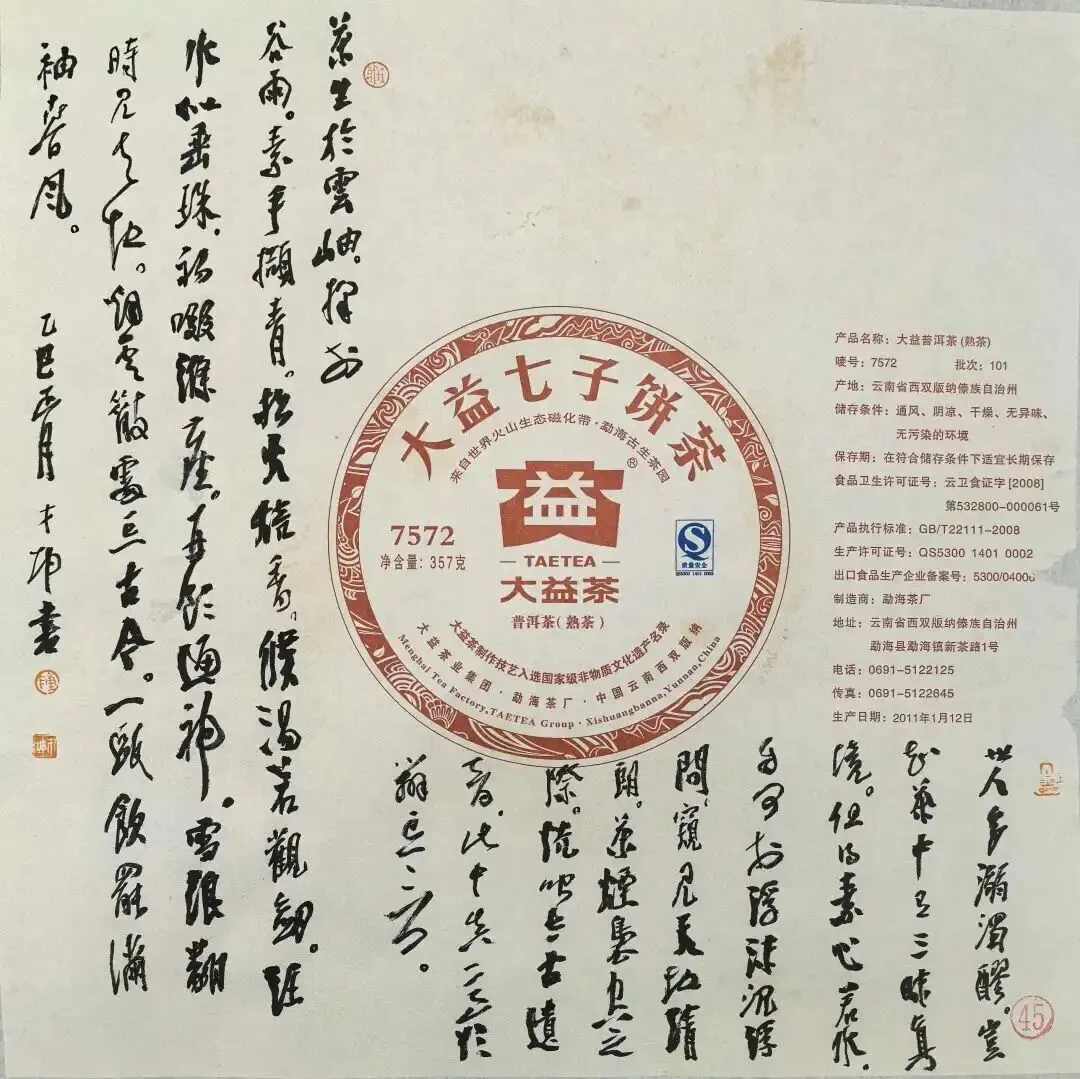 茶生於雲岫。擇於
谷雨。素手擷青。松火焙香。候湯若觀劍。班
水似垂珠。初啜滌塵。再飲通神。雪浪翻
時見天地。烟雲散處忘古今。一甌飲罷滿
袖春風。
乙巳正月 書
大益七子饼茶
来自世界火山生态磁化带·勐海古生茶园
益
®
TAETEA
大益茶
普洱茶(熟茶)
7572
净含量：357克
S
质量安全
QS5300 1401 0002
大益茶制作技艺入选国家级非物质文化遗产名录
大益茶业集团·勐海茶厂·中国云南西双版纳
Menghai Tea Factory,TAETEA Group·Xishuangbanna,Yunnan,China
产品名称：大益普洱茶(熟茶)
唛号：7572 批次：101
产地：云南省西双版纳傣族自治州
储存条件：通风、阴凉、干燥、无异味、
无污染的环境
保存期：在符合储存条件下适宜长期保存
食品卫生许可证号：云卫食证字[2008]
第532800-000061号
产品执行标准：GB/T22111-2008
生产许可证号：QS5300 1401 0002
出口食品生产企业备案号：5300/0400
制造商：勐海茶厂
地址：云南省西双版纳傣族自治州
勐海县勐海镇新茶路1号
电话：0691-5122125
传真：0691-5122645
生产日期：2011年1月12日
世人多溺濁醪。豈
知茶中有三昧真
境。但得素心若水。
自可於浮沫沉浮
間。窺見天地清
朗。茶煙裊裊之
際。恍與古遺
音。此中真意欲
辯已忘言。
45